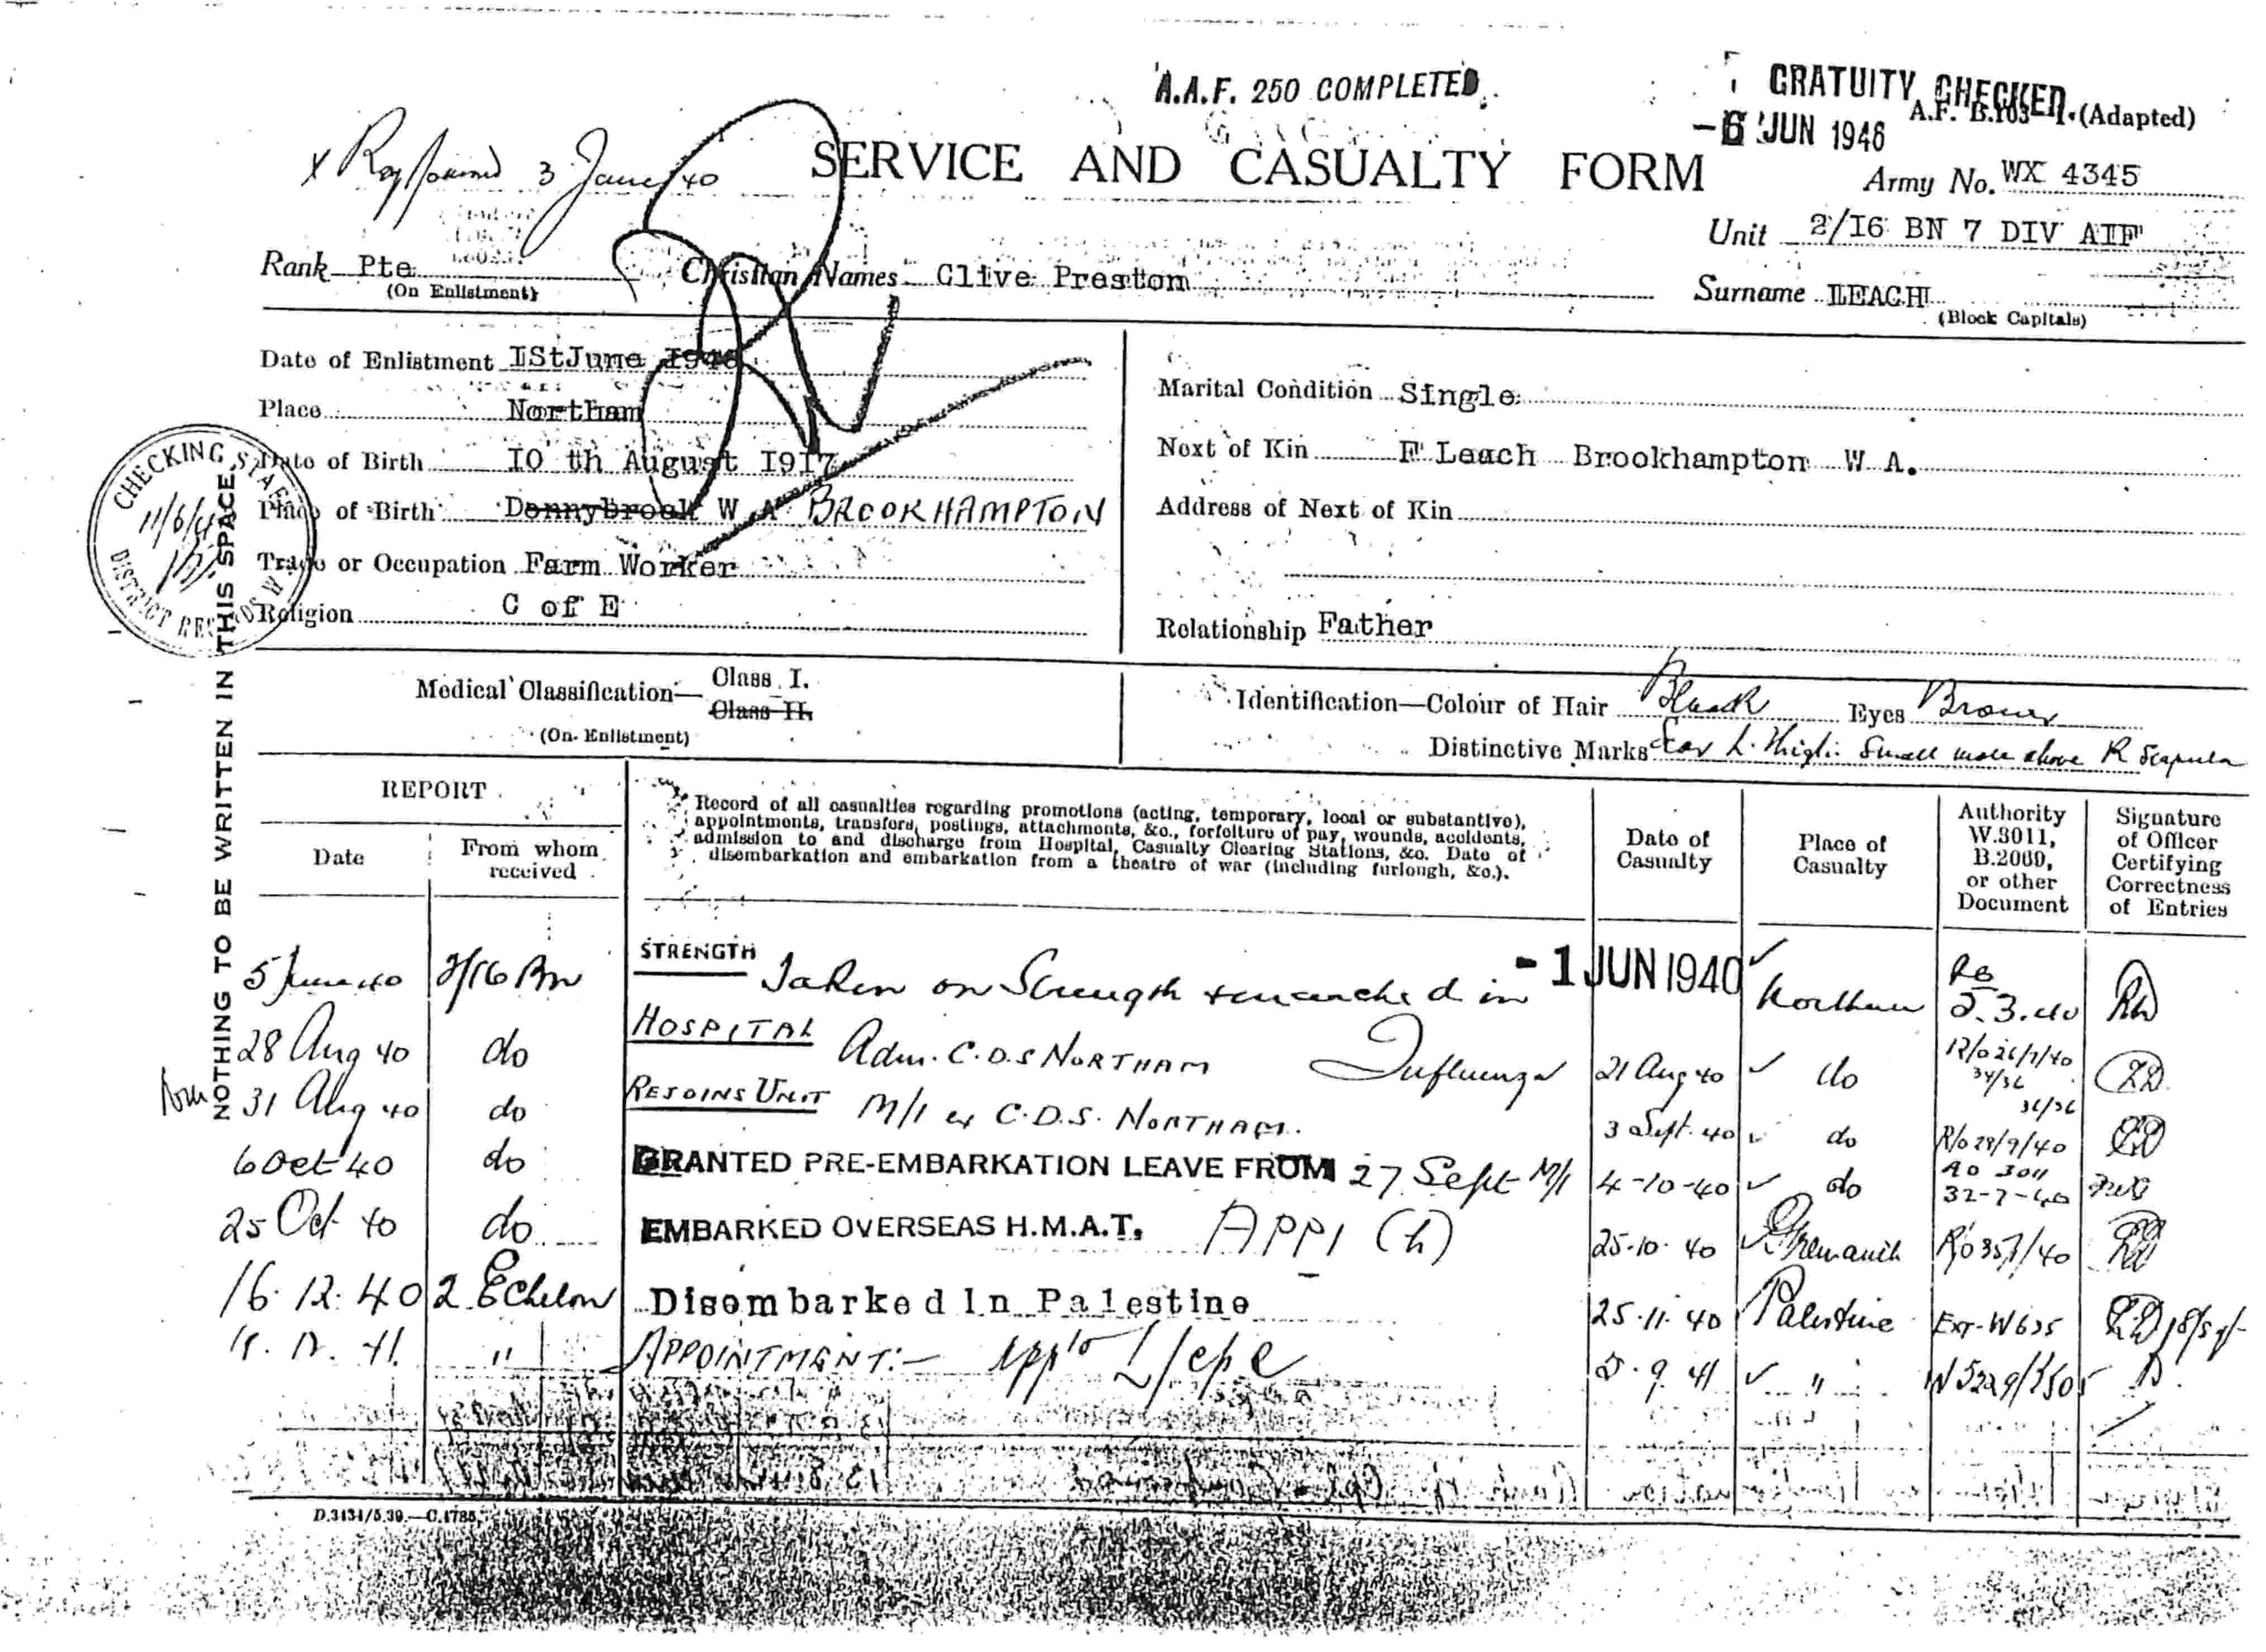 A.A.F. 250 COMPLETED
GRATUITY CHECKED.
A.F. B.103—1. (Adapted)
-6 JUN 1946
3 June 40
SERVICE AND CASUALTY FORM
Army No. WX 4345
Unit 2/I6 BN 7 DIV AIF
Rank Pte
(On Enlistment)
Christian Names Clive Preston
Surname LEACH
(Block Capitals)
Date of Enlistment IStJune I940
Place Northam
Date of Birth I0 th August I9I7
Place of Birth Donnybrook W A BROOKHAMPTON
Trade or Occupation Farm Worker
Religion C of E
Marital Condition Single
Next of Kin F Leach Brookhampton W A.
Address of Next of Kin
Relationship Father
CHECKING STAFF
DISTRICT RECORDS W
NOTHING TO BE WRITTEN IN THIS SPACE
Medical Classification— Class I.
Class II.
(On Enlistment)
Identification—Colour of Hair Black Eyes Brown
Distinctive Marks Scar L. Thigh. Small mole above R Scapula
REPORT
Date
From whom received
Record of all casualties regarding promotions (acting, temporary, local or substantive),
appointments, transfers, postings, attachments, &c., forfeiture of pay, wounds, accidents,
admission to and discharge from Hospital, Casualty Clearing Stations, &c. Date of
disembarkation and embarkation from a theatre of war (including furlough, &c.).
Date of Casualty
Place of Casualty
Authority W.3011, B.2069, or other Document
Signature of Officer Certifying Correctness of Entries
5 June 40 2/16 Bn STRENGTH Taken on Strength & marched in -1 JUN 1940 Northam
28 Aug 40 do HOSPITAL Adm. C.D.S NORTHAM Influenza 21 Aug 40 do
31 Aug 40 do REJOINS UNIT M/I ex C.D.S. NORTHAM. 3 Sept. 40 do R/o 29/9/40
6 Oct 40 do GRANTED PRE-EMBARKATION LEAVE FROM 27 Sept M/I 4-10-40 do 32-7-40
25 Oct 40 do EMBARKED OVERSEAS H.M.A.T. APPI (h) 25.10.40 Fremantle
16.12.40 2 Echelon Disembarked In Palestine 25.11.40 Palestine
" APPOINTMENT:- App to L/Cpl 9 41 "
D.3134/5.39.—C.1785.